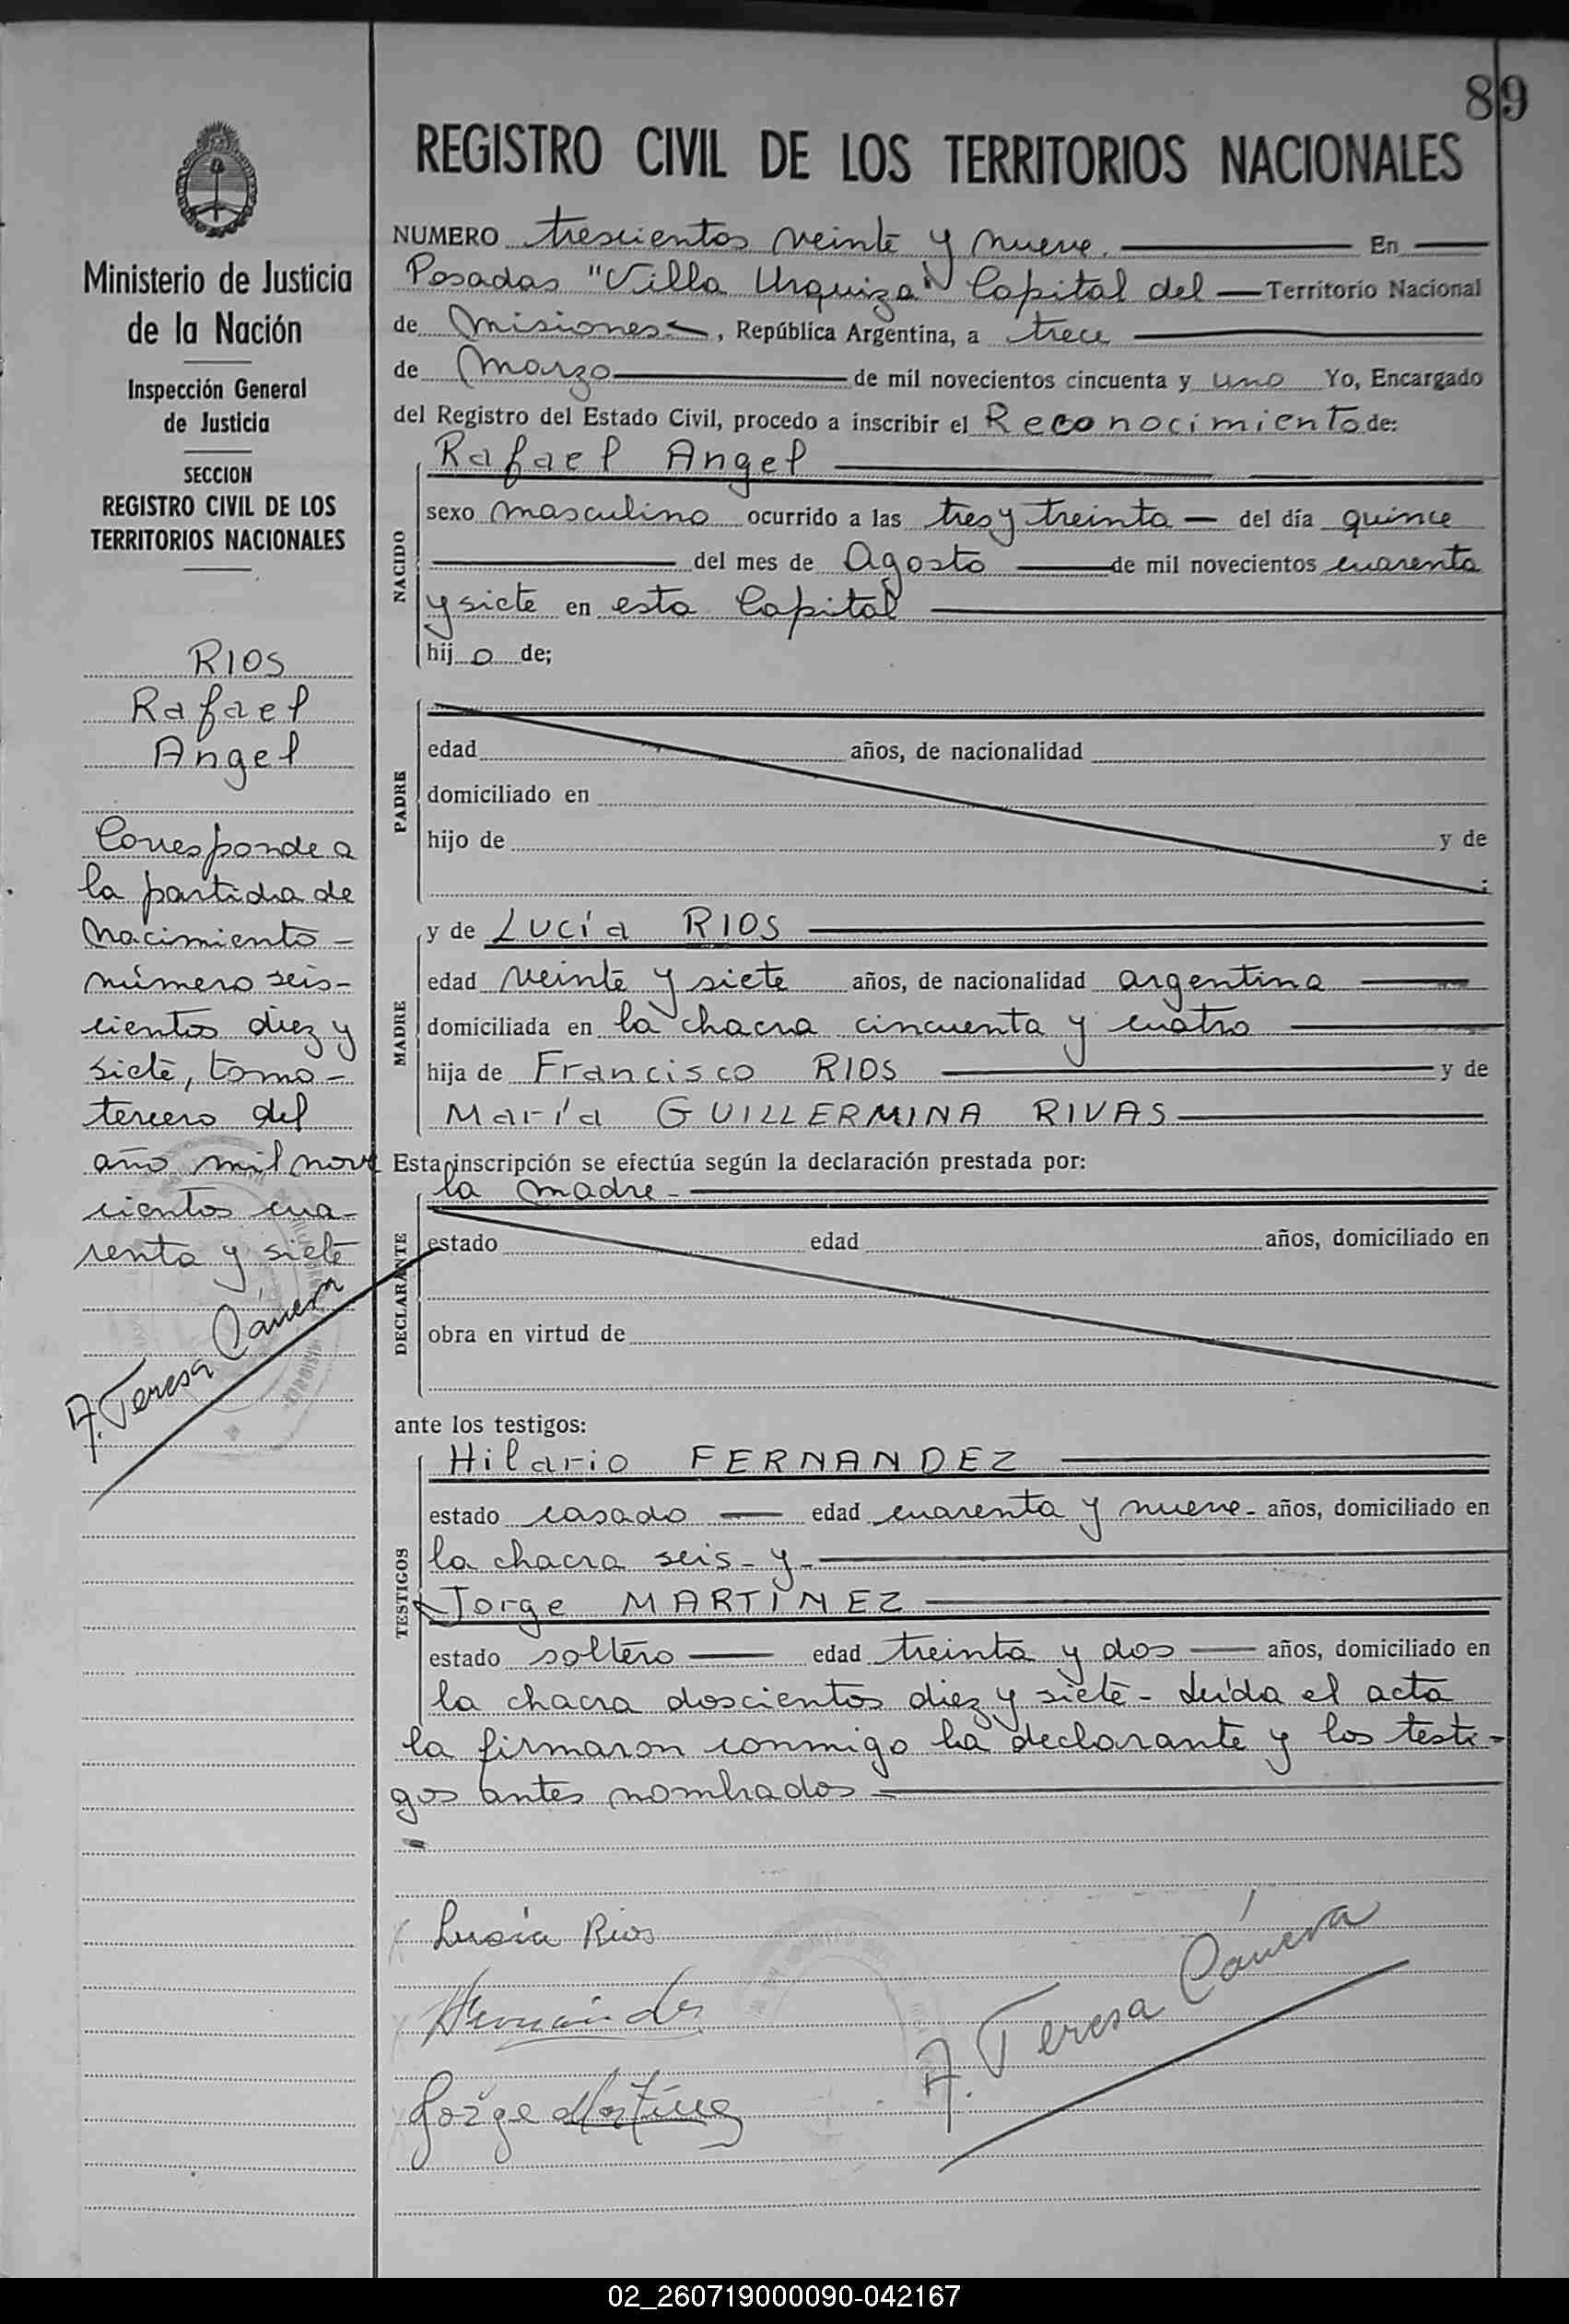 89
REGISTRO CIVIL DE LOS TERRITORIOS NACIONALES
Ministerio de Justicia
de la Nación
Inspección General
de Justicia
SECCION
REGISTRO CIVIL DE LOS
TERRITORIOS NACIONALES
RIOS
Rafael
Angel
Corresponde a
la partida de
Nacimiento -
número seis-
cientos diez y
siete, tomo -
tercero del
año mil nove
cientos cua-
renta y siete
A. Teresa Cánera
NUMERO trescientos veinte y nueve. En
Posadas "Villa Urquiza" Capital del Territorio Nacional
de Misiones, República Argentina, a trece
de Marzo de mil novecientos cincuenta y uno Yo, Encargado
del Registro del Estado Civil, procedo a inscribir el Reconocimiento de:
NACIDO
Rafael Angel
sexo masculino ocurrido a las tres y treinta — del día quince
del mes de Agosto de mil novecientos cuarenta
y siete en esta Capital
hij o de;
PADRE
edad años, de nacionalidad
domiciliado en
hijo de y de
;
MADRE
y de Lucía RIOS
edad veinte y siete años, de nacionalidad argentina
domiciliada en la chacra cincuenta y cuatro
hija de Francisco RIOS y de
María GUILLERMINA RIVAS
Esta inscripción se efectúa según la declaración prestada por:
DECLARANTE
la madre -
estado edad años, domiciliado en
obra en virtud de
ante los testigos:
TESTIGOS
Hilario FERNANDEZ
estado casado — edad cuarenta y nueve - años, domiciliado en
la chacra seis - y -
Jorge MARTINEZ
estado soltero — edad treinta y dos — años, domiciliado en
la chacra doscientos diez y siete - Leída el acta
la firmaron conmigo la declarante y los testi-
gos antes nombrados
Lucia Rios
Jorge Martinez
A. Teresa Cánera
02_260719000090-042167